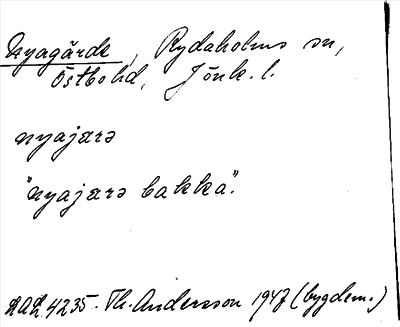 Nyagärde, Rydaholms sn,
Östbo hd, Jönk. l.
nyajarə
"nyajarə bakka".
LAL 4235. Th. Andersson 1947 (bygdem.)